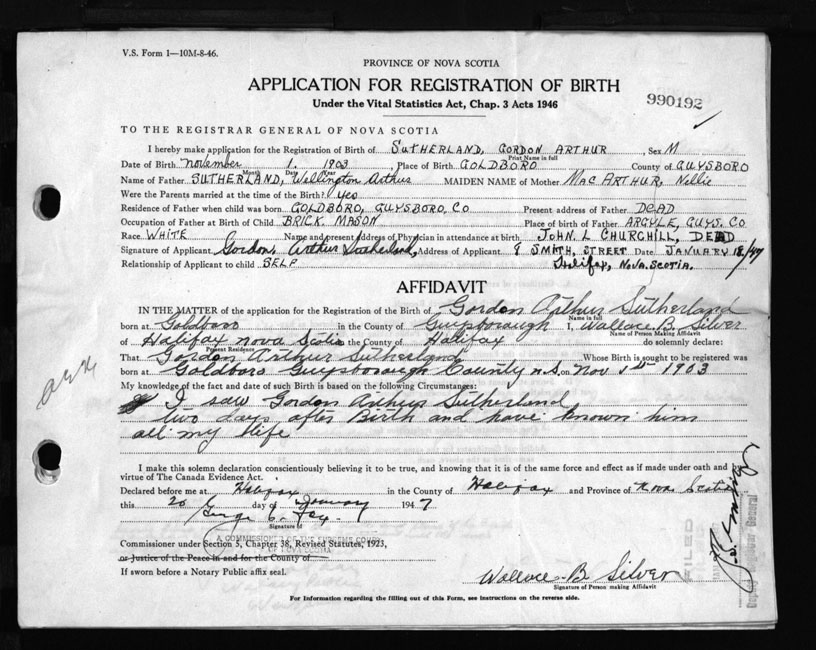 V.S. Form 1—10M-8-46.
PROVINCE OF NOVA SCOTIA
APPLICATION FOR REGISTRATION OF BIRTH
Under the Vital Statistics Act, Chap. 3 Acts 1946
990192
TO THE REGISTRAR GENERAL OF NOVA SCOTIA
I hereby make application for the Registration of Birth of SUTHERLAND, GORDON ARTHUR, Sex M
Print Name in full
Date of Birth November 1. 1903, Place of Birth GOLDBORO County of GUYSBORO
Month Date Year
Name of Father SUTHERLAND, Wellington Arthur MAIDEN NAME of Mother MacARTHUR, Nellie
Were the Parents married at the time of the Birth? Yes
Residence of Father when child was born GOLDBORO, GUYSBORO, CO Present address of Father DEAD
Occupation of Father at Birth of Child BRICK MASON Place of birth of Father ARGYLE, GUYS. CO
Race WHITE Name and present address of Physician in attendance at birth JOHN. L CHURCHILL, DEAD
Signature of Applicant Gordon Arthur Sutherland, Address of Applicant 8 SMITH, STREET Date JANUARY 18/47
Relationship of Applicant to child SELF Halifax, NOVA.SCOTIA.
AFFIDAVIT
IN THE MATTER of the application for the Registration of the Birth of Gordon Arthur Sutherland
Name in full
born at Goldboro in the County of Guysborough I, Wallace. B. Silver
Name of Person Making Affidavit
of Halifax nova Scotia the County of Halifax do solemnly declare:
Present Residence
That Gordon Arthur Sutherland Whose Birth is sought to be registered was
born at Goldboro Guysborough County n.S. on Nov 1st 1903
My knowledge of the fact and date of such Birth is based on the following Circumstances:
I saw Gordon Arthur Sutherland
two days after Birth and have known him
all my life
I make this solemn declaration conscientiously believing it to be true, and knowing that it is of the same force and effect as if made under oath and by
virtue of The Canada Evidence Act.
Declared before me at Halifax in the County of Halifax and Province of Nova Scotia
this 20 day of January 1947
George C. Fox
Signature of
A COMMISSIONER OF THE SUPREME COURT
OF NOVA SCOTIA
Commissioner under Section 5, Chapter 38, Revised Statutes, 1923,
or Justice of the Peace in and for the County of
If sworn before a Notary Public affix seal.
Wallace B. Silver
Signature of Person making Affidavit
For Information regarding the filling out of this Form, see instructions on the reverse side.
FILED
Deputy Registrar General